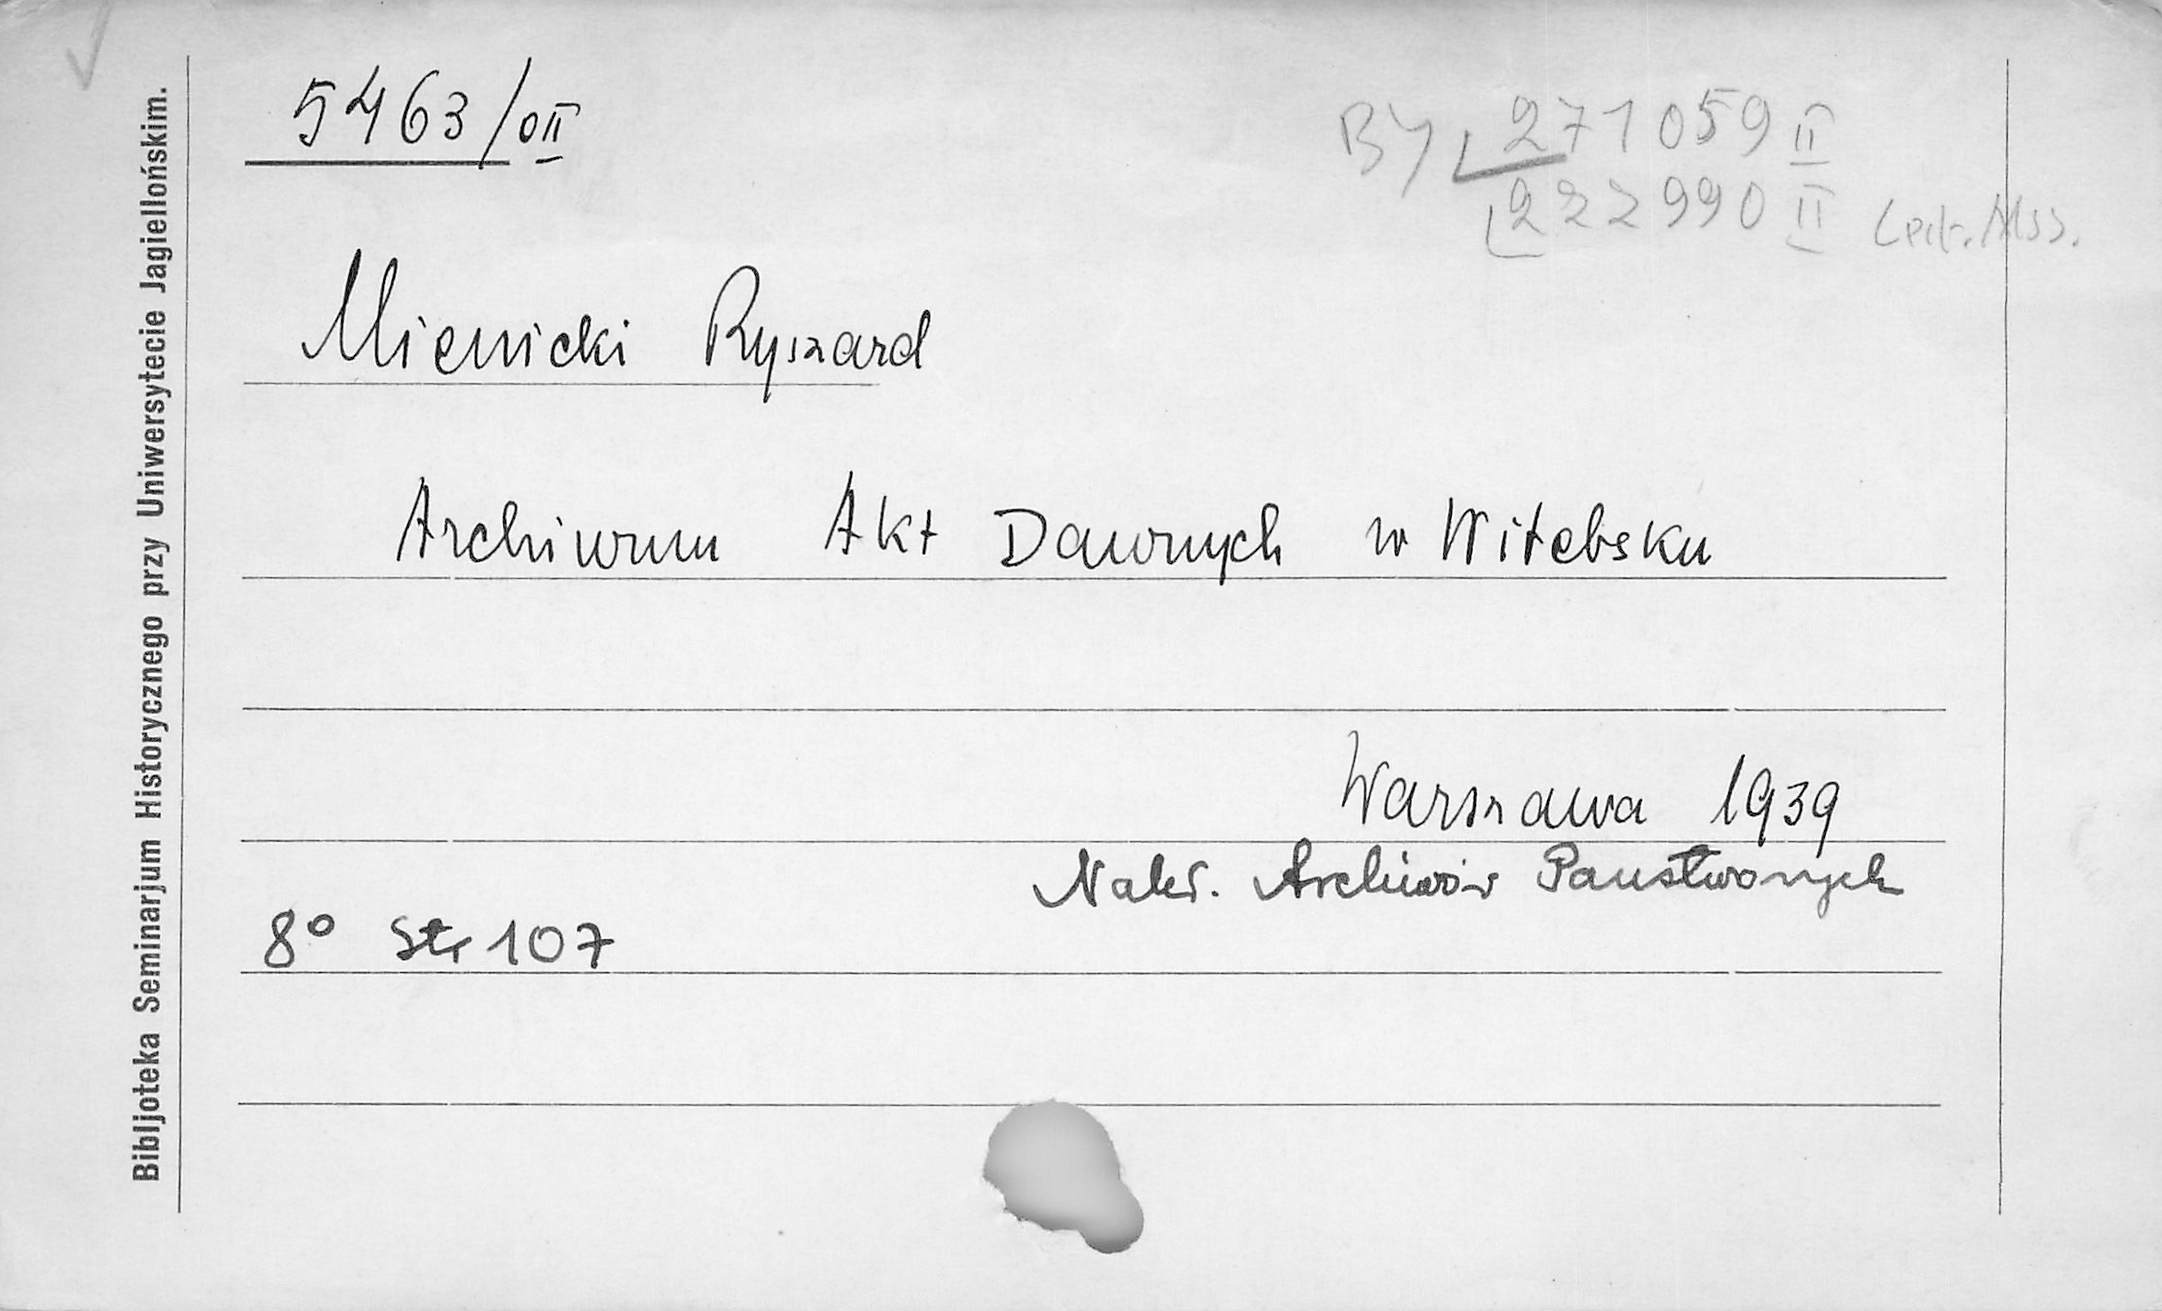 Bibljoteka Seminarjum Historycznego przy Uniwersytecie Jagiellońskim.
5463/oII
BJ 271059 II
222990 II Lect. Mss.
Mienicki Ryszard
Archiwum Akt Dawnych w Witebsku
Warszawa 1939
Nakł. Archiwów Państwowych
8° Str 107